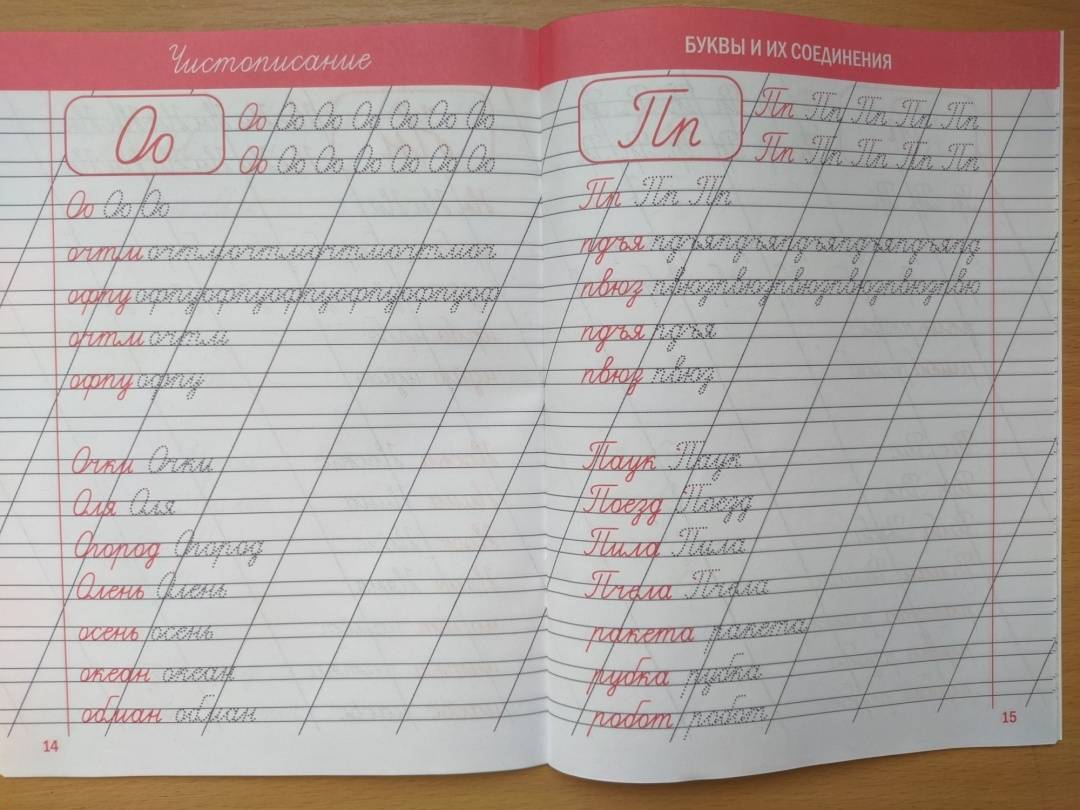 Чистописание
Оо
Оо Оо Оо Оо Оо Оо Оо
Оо Оо Оо Оо Оо Оо Оо
Оо Оо Оо
очтм очтмочтмочтмочтмоч
офпу офпуофпуофпуофпуофпуоф
очтм очтм
офпу офпу
Очки Очки
Оля Оля
Огород Огород
Олень Олень
осень осень
океан океан
обман обман
14
БУКВЫ И ИХ СОЕДИНЕНИЯ
Пп
Пп Пп Пп Пп Пп
Пп Пп Пп Пп Пп
Пп Пп Пп
пдъя пдъяпдъяпдъяпдъяпдъяпд
пвюз пвюзпвюзпвюзпвюзпвюзпвю
пдъя пдъя
пвюз пвюз
Паук Паук
Поезд Поезд
Пила Пила
Пчела Пчела
ракета ракета
рубка рубка
робот робот
15